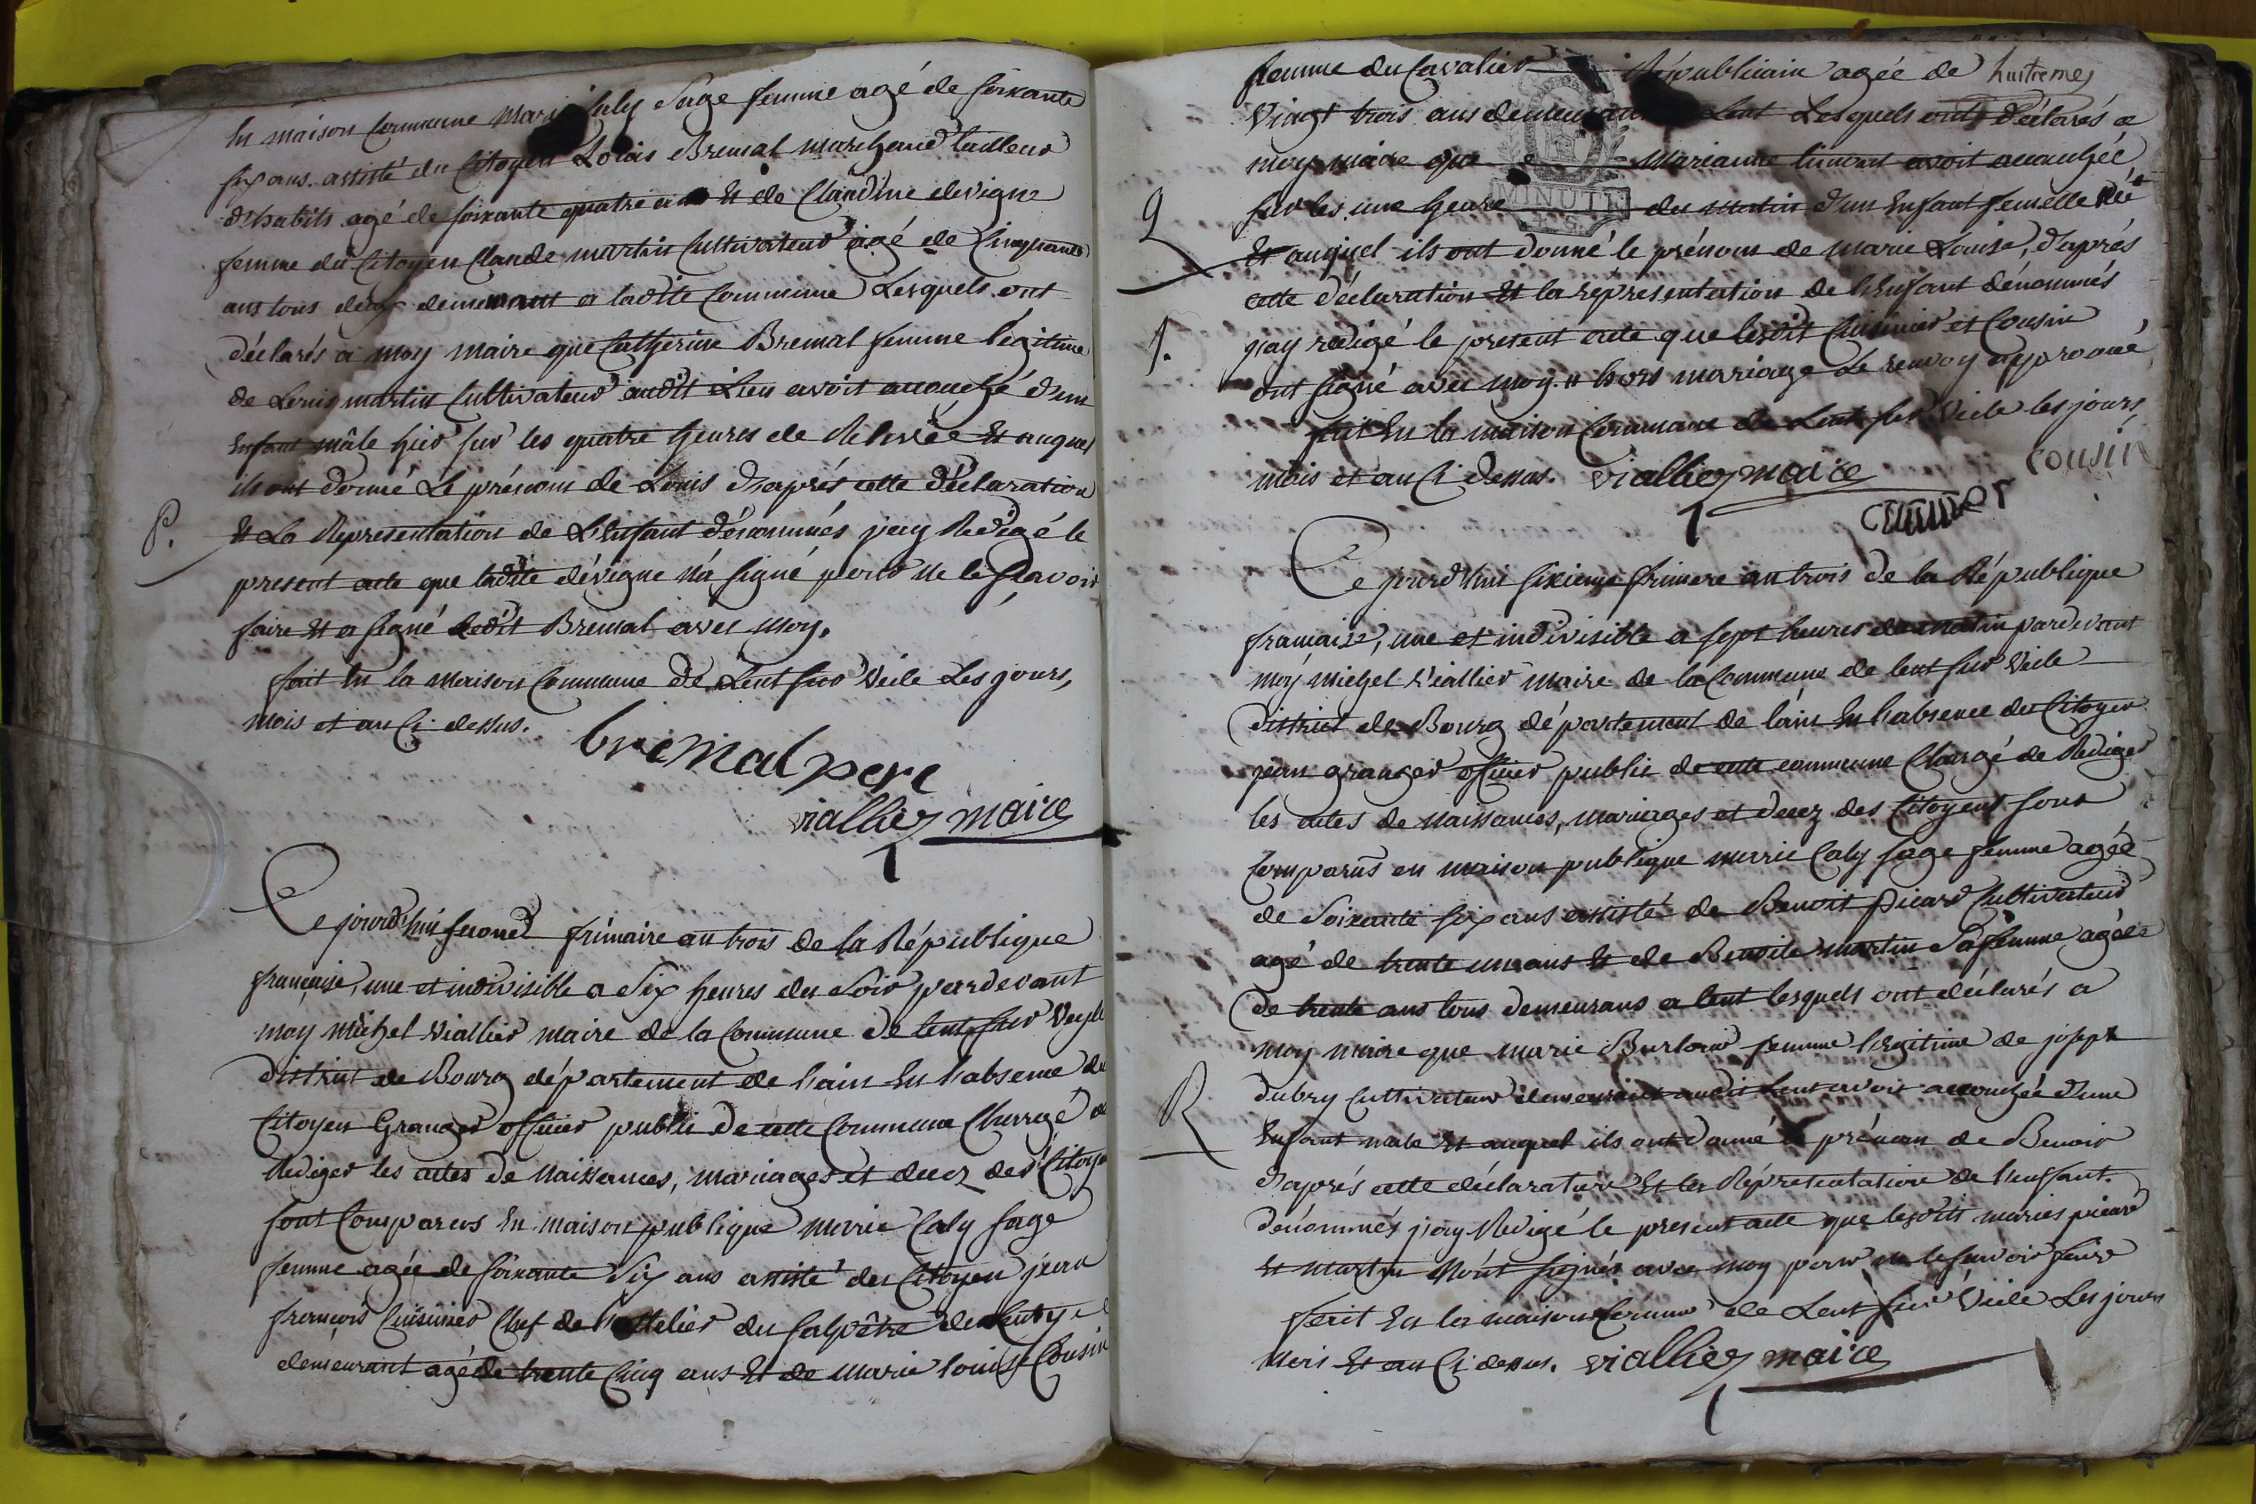 En maison Commune Marie Caly Sage femme agé de soixante
six ans. assisté du Citoyen Louis Bremal marchand tailleur
d'habits agé de soixante quatre ans Et de Claudine devigne
femme du Citoyen Claude martin Cultivateur agé de Cinquante
ans tous deux demeurant a ladite Commune Lesquels ont
déclarés a moy maire que Catherine Bremal femme légitime
de Louis martin Cultivateur audit Lieu avoit accouché d'un
Enfant mâle hier sur les quatre heures de Relevée Et auquel
ils ont donné Le prénom de Louis d'aprés cette déclaration
P.
Et La Représentation de L'Enfant dénommés j'ay Rédigé le
present acte que ladite dévigne n'a signé pour ne le sçavoir
faire Et a signé ledit Bremal avec moy.
fait En la maison Commune de Lent sur Veile Les jours,
mois et an Ci dessus.
bremal pere
viallier maire
Ce jourd'hui second frimaire an trois de la République
française, une et indivisible a Six heures du Soir pardevant
moy Michel Viallier maire de la Commune de lent sur Veyle
district de Bourg département de l'ain En l'absence du
Citoyen Granger officier public de cette Commune Chargé de
Rediger les actes de Naissances, mariages et decez des Citoyens
sont Comparus En maison publique marie Caly sage
femme agée de soixante Six ans assisté du Citoyen jean
francois Cuisinier Chef de l'attelier du Salpêtre de Lent y
demeurant agé de trente Cinq ans Et de marie louise Cousin
femme du Cavalier Républicain agée de huitieme
Vingt trois ans demeurant Lent Lesquels ont déclarés a
moy maire que Marianne avoit accouchée
Q
sur les une heure du matin d'un Enfant femelle
Et auquel ils ont donné le prénom de marie Louise, d'aprés
cette déclaration Et la représentation de l'Enfant dénommés
1.
j'ay redigé le present acte que lesdit Cuisinier et Cousin
ont signé avec moy. # hors mariage Le renvoy approuvé
fait En la maison Commune de Lent sur Veile les jours,
mois et an Ci dessus. viallier maire cousin
Ce jourd'hui sixieme frimere an trois de la République
française, une et indivisible a sept heures du matin pardevant
moy michel Viallier maire de la Commune de lent sur Veile
district de Bourg département de l'ain En l'absence du Citoyen
jean granger officier public de cette commune Chargé de Rediger
les actes de naissances, mariages et decez des Citoyens sont
Comparus en maison publique marie Caly sage femme agée
de Soixante six ans assisté de Benoit picard Cultivateur
agé de trente un ans Et de Benoite martin Sa femme agée
de trente ans tous demeurans a lent lesquels ont déclarés a
moy maire que marie femme légitime de joseph
R
dubry Cultivateur demeurant audit Lent avoit accouchée d'une
Enfant male Et auquel ils ont donné le prénom de Benoit
d'aprés cette déclaration Et la Répresentation de l'enfant
dénommés j'ay Redigé le present acte que lesdits mariés picard
Et martin N'ont signés avec moy pour ne le savoir faire
fait En la maison Commune de Lent sur Veile Les jours
mois Et an Ci dessus. viallier maire
MINUTE